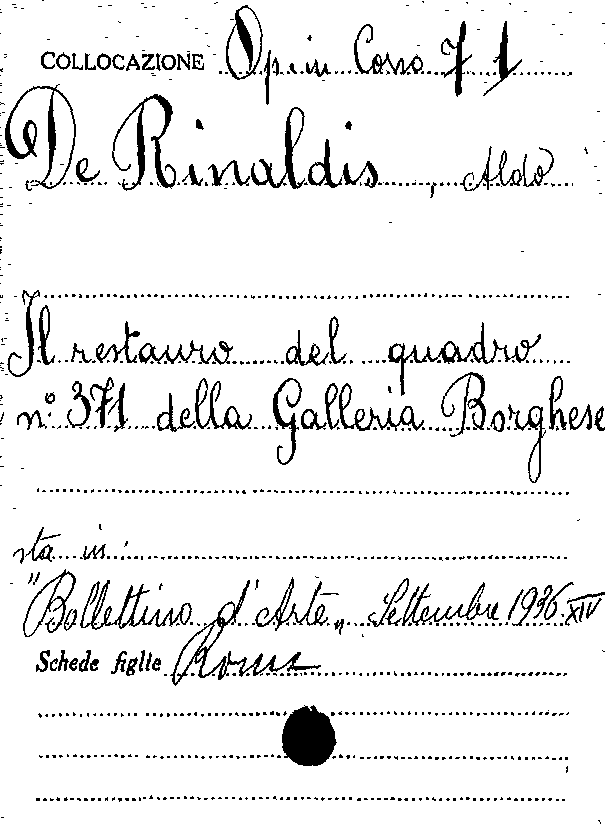 COLLOCAZIONE Op in Corso 7 1
De Rinaldis, Aldo
Il restauro del quadro
n° 371 della Galleria Borghese
sta in:
"Bollettino d'Arte„ Settembre 1936 XIV
Schede figlie Roma